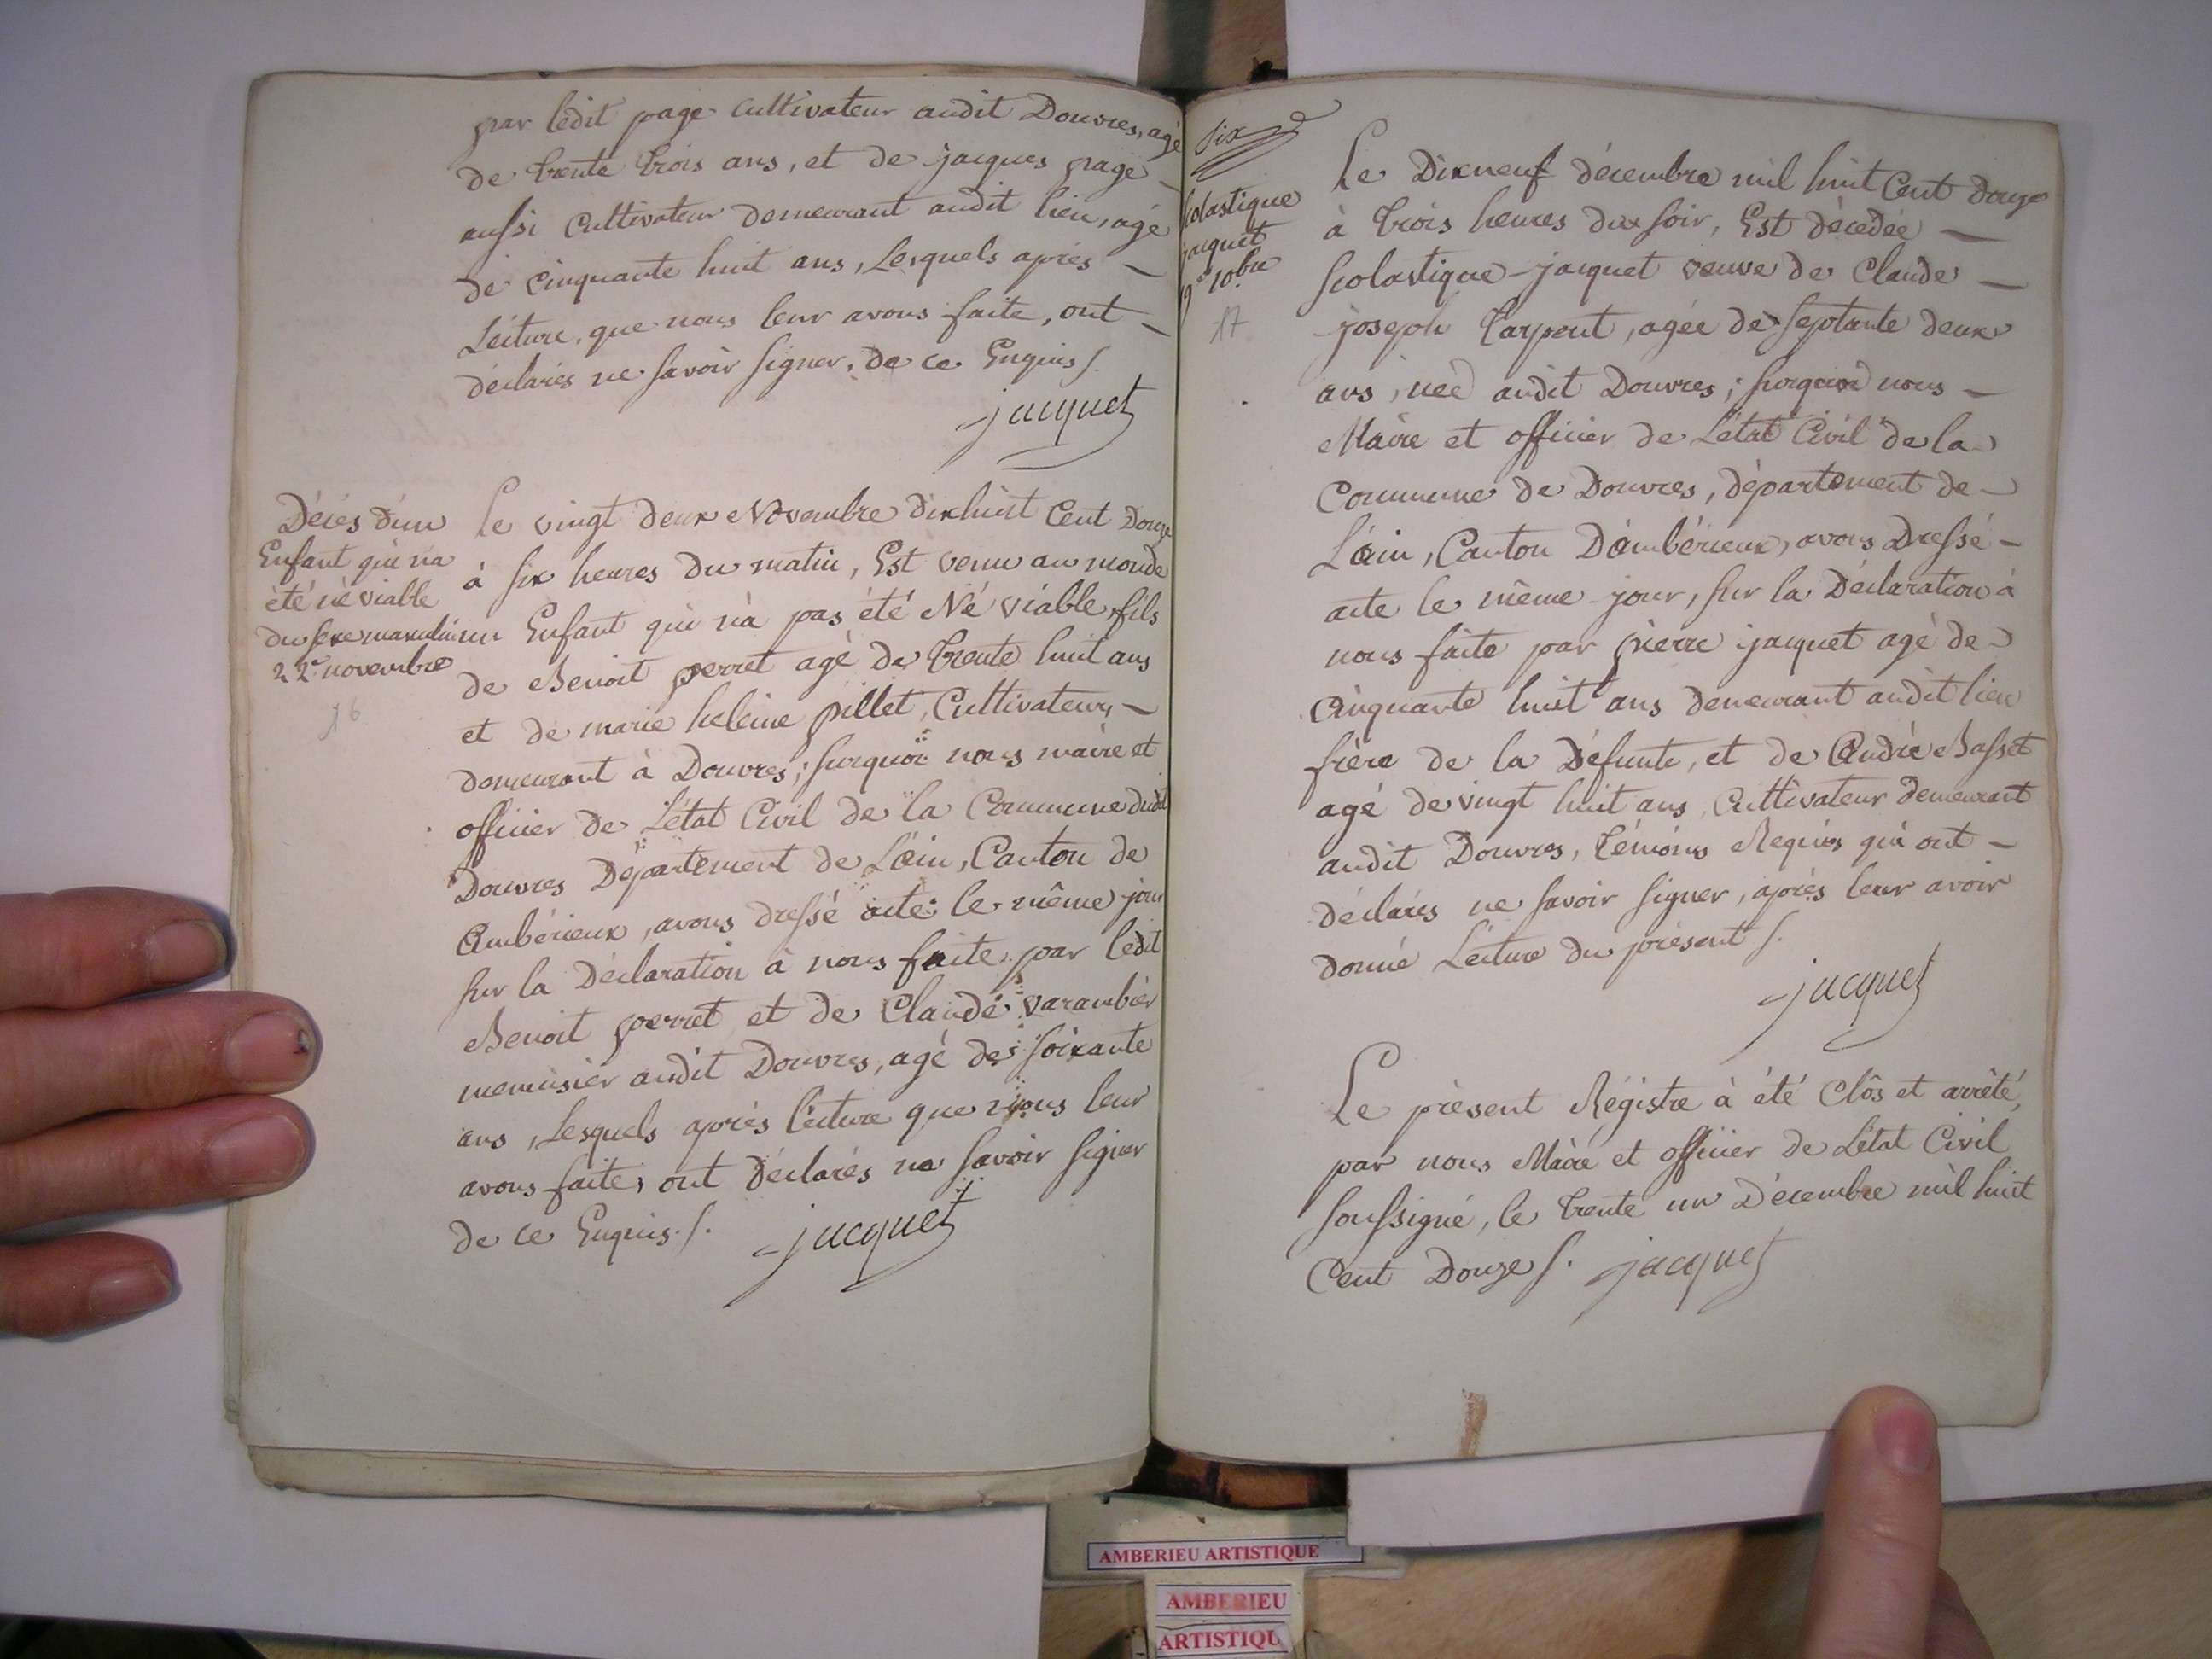 par ledit page cultivateur audit Douvres, agé
de trente trois ans, et de jacques page
aussi Cultivateur demeurant audit lieu, agé
de cinquante huit ans, Lesquels après
Lécture, que nous leur avons faite, ont
déclarés ne savoir signer, de ce Enquis /.
jacquet
Décès d'un
Enfant qui n'a
été né viable
du sexe masculin
22e novembre
16
Le vingt deux Novembre dix huit Cent Douze
à six heures du matin, Est venu au monde
un Enfant qui n'a pas été Né viable, fils
de Benoit perret agé de trente huit ans
et de marie heleine pillet, Cultivateurs,
demeurant à Douvres; surquoi nous maire et
officier de L'état Civil de la Commune dudit
Douvres Département de L'ain, Canton de
Ambérieux, avons dressé acte le même jour
sur la Déclaration à nous faite par ledit
Benoit perret et de Claude varambier
menuisier audit Douvres, agé de soixante
ans, Lesquels après lécture que nous leur
avons faite, ont déclarés ne savoir signer
de ce Enquis /.
jacquet
six
scolastique
jacquet
19e 10bre
17
Le Dixneuf décembre mil huit Cent douze
à trois heures du soir, Est décédée
Scolastique jacquet veuve de Claude
joseph Carpent, agée de septante deux
ans, née audit Douvres; surquoi nous
Maire et officier de L'état Civil de la
Commune de Douvres, département de
L'ain, Canton D'ambérieux, avons Dressé
acte le même jour, sur la Déclaration à
nous faite par pierre jacquet agé de
Cinquante huit ans demeurant audit lieu
frère de la Défunte, et de André Basset
agé de vingt huit ans, Cultivateur demeurant
audit Douvres, témoins Requis qui ont
déclarés ne savoir signer, après leur avoir
donné Lécture du présent /.
jacquet
Le présent Régistre à été Clôs et arrêté,
par nous Maire et officier de L'état Civil
soussigné, le trente un Décembre mil huit
Cent Douze /. jacquet
AMBERIEU ARTISTIQUE
AMBERIEU
ARTISTIQU